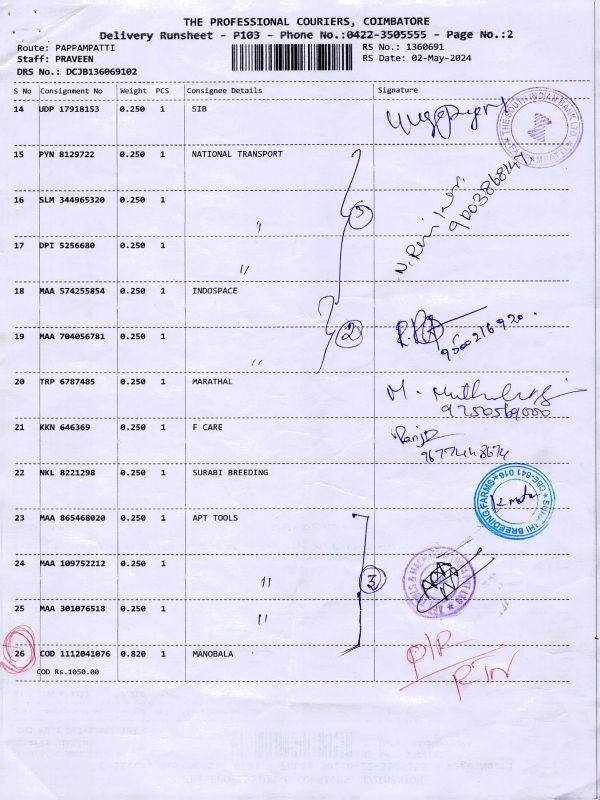 THE PROFESSIONAL COURIERS, COIMBATORE
Delivery Runsheet - P103 - Phone No.:0422-3505555 - Page No.:2
Route: PAPPAMPATTI RS No.: 1360691
Staff: PRAVEEN RS Date: 02-May-2024
DRS No.: DCJB136069102
S No Consignment No Weight PCS Consignee Details Signature
14 UDP 17918153 0.250 1 SIB
THE SOUTH INDIAN BANK LTD
PAPPAMPATTI
15 PYN 8129722 0.250 1 NATIONAL TRANSPORT
16 SLM 344965320 0.250 1 "
3
17 DPI 5256680 0.250 1 "
18 MAA 574255854 0.250 1 INDOSPACE
19 MAA 704056781 0.250 1 "
2
9500216920
20 TRP 6787485 0.250 1 MARATHAL
21 KKN 646369 0.250 1 F CARE
9677448674
22 NKL 8221298 0.250 1 SURABI BREEDING
SURABHI BREEDING FARMS
CBE-641 016
23 MAA 865468020 0.250 1 APT TOOLS
24 MAA 109752212 0.250 1 "
3
25 MAA 301076518 0.250 1 "
26 COD 1112041076 0.820 1 MANOBALA
COD Rs.1050.00